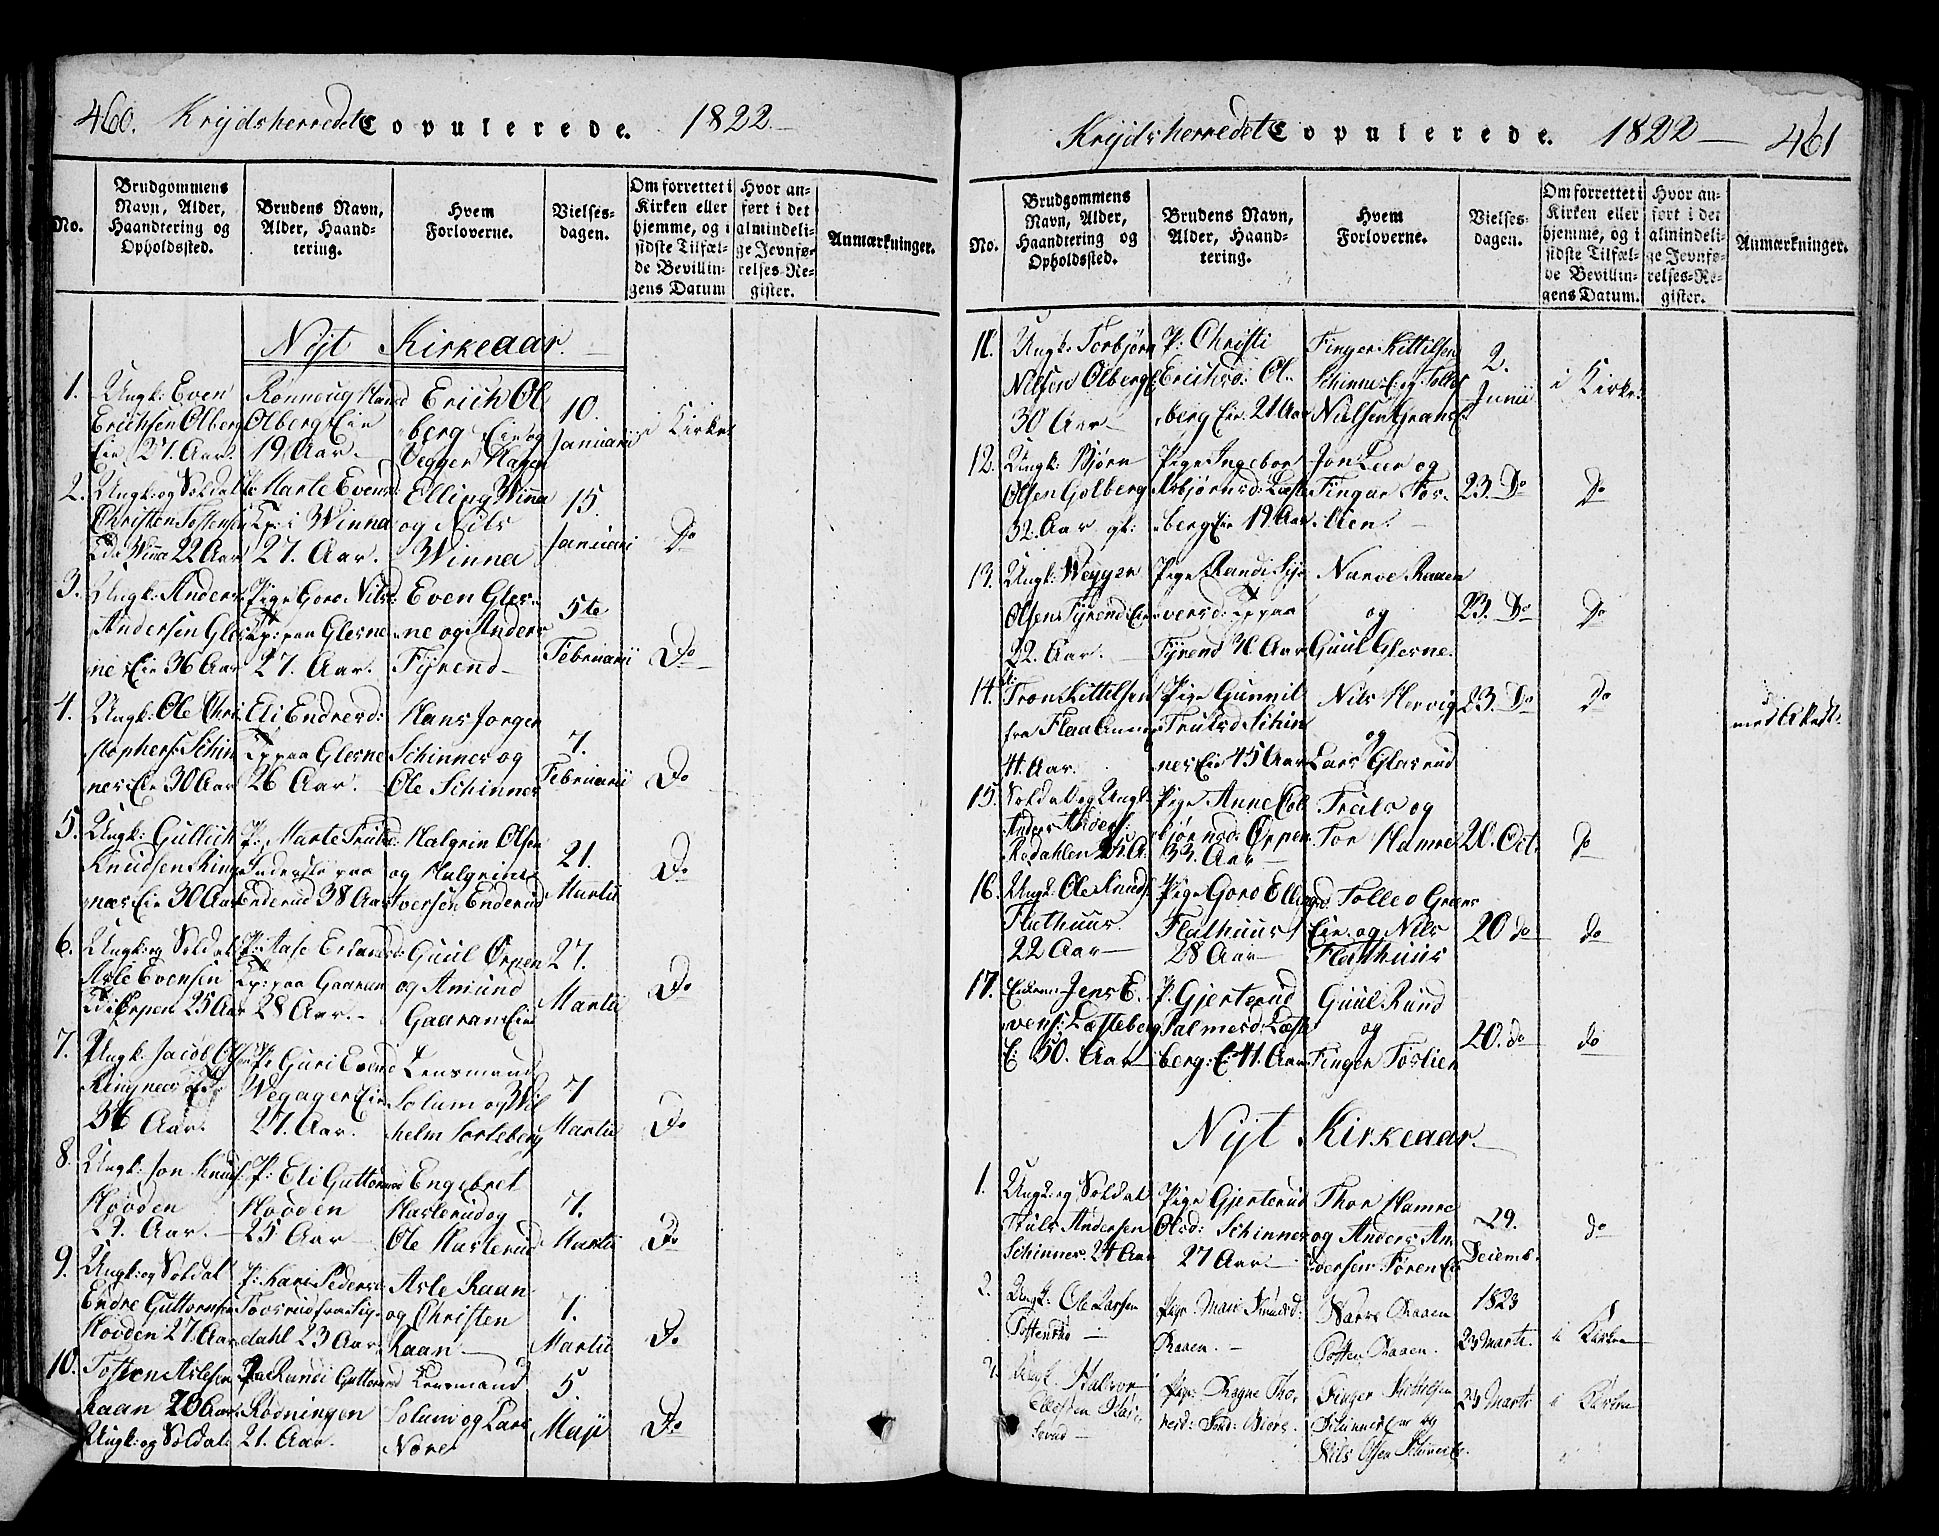 460. Krydsherredet Copulerede. 1822.
No.
Brudgommens Navn, Alder, Haandtering og Opholdssted.
Brudens Navn, Alder, Haandtering.
Hvem Forloverne.
Vielsesdagen.
Om forrettet i Kirken eller hjemme, og i sidste Tilfælde Bevillingens Datum
Hvor anført i det almindelige Jevnførelses-Register.
Anmærkninger.
Nyt Kirkeaar.
1. Ungk: Even
Erichsen Olberg
Eie 27. Aar.
Rønnoug
Olberg Eie
19 Aar.
Erich Ol
berg Eie og
Vegger Hagen
10.
Januarii
i Kirke
2. Ungk: og Soldat
Christen Tostensen
Winna 22 Aar
Marte Evens
i Winna
27. Aar.
Elling Winna
og Nils
Winna
15
Januari
Do
3. Ungk: Anders
Andersen Gles
ne Eie 36 Aar
Pige Goro Nilsd:
paa Glesne
27. Aar.
Even Gles
ne og Anders
Fyrend
5te
Februarii
Do
4. Ungk: Ole Chri
stophers: Schin
nes Eie 30 Aar
Eli Endresd:
paa Glesne
26 Aar.
Hans Jorgen
Schinnes og
Ole Schinnes
7.
Februarii
Do
5. Ungk: Gullich
Knudsen Ring
nes Eie 30 Aar
P: Marte Trulsd:
Inderste paa
Enderud 38 Aar
Halgrin Olsen
og Halgrim
Iversen Enderud
21.
Martii
Do
6. Ungk: og Soldat
Asle Evensen
Ørpen 25 Aar
P: Aase
paa Gaaren
28 Aar.
Guul Ørpen
og Amund
Gaaram Eie
27.
Martii
Do
7. Ungk: Jacob
Ringnes
36 Aar.
P: Guri Evensd
Wegager Eie
27. Aar.
Lensmand
Solum og Wil
helm Sorteberg
7
Martii
Do
8. Ungk: Jon Knuds:
Hovden
29. Aar.
P: Eli Guttorms
Hovden
25 Aar
Engebret
Haslerud og
Ole Haslerud
7.
Martii
Do
9. Ungk: og Soldat
Endre Guttormsen
Hovden 27. Aar
P: Kari Peders
fra Sig
dahl 23 Aar
Asle Raan
og Christen
Raan
7.
Martii
Do
10. Tosten Aslesen
Raan 26 Aar
Ungk: og Soldat:
Randi Guttormsd
Rodningen
21. Aar.
Lensmand
Solum og Lars
Nore
5.
Maji
Do
Krydsherredet Copulerede. 1822 461
No.
Brudgommens Navn, Alder, Haandtering og Opholdssted.
Brudens Navn, Alder, Haandtering.
Hvem Forloverne.
Vielsesdagen.
Om forrettet i Kirken eller hjemme, og i sidste Tilfælde Bevillingens Datum.
Hvor anført i det almindelige Jevnførelses-Register.
Anmærkninger.
11. Ungk: Torbjørn
Nilsen Olberg
30 Aar
P: Christi
Erichsd: Ol
berg Eie 21 Aar
Finger Kittilsen
Schinnes E: og Tollef
Nielsen
2.
Junii
i Kirke
12. Ungk: Bjørn
Olsen Golberg
32. Aar
Pige Ingebor
Asbjørnsd: Læste
berg Eie 19 Aar
Jon Leer og
Fingar Tos
lien.
23. Do
Do
13. Ungk: Wegger
Olsen Fyrend Eie
22. Aar.
Pige Randi Sy
versd: paa
Fyrend 31 Aar
Narve Raaen
og
Guul Glesne.
23. Do
Do
14. Tron Kittelsen
fra Flaa
41 Aar.
Pige Gunnil
Trulsd Schin
nes Eie 45 Aar
Nils Hervig
og
Lars Glasrud
23. Do
Do
15. Soldat og Ungk:
Anders Anders:
Rodahlen 25 A.
Pige Anne Col
bjørnsd: Ørpen
33. Aar
Truls og
Tor Hamre
20. Oct.
Do
16. Ungk: Ole Knuds
Flathuus
22 Aar
Pige Goro Ellingsd
Flathuus
28 Aar
Tolleo
Eie og Nils
Flathuus
20 do
do
17. Enkem: Jens E.
vens: Læsteberg
E: 50. Aar
P: Gjerterud
Palmesd: Læste
berg: E: 41. Aar
Guul Rund
og
Finger Toslien
20. do
do
Nyt Kirkeaar.
1. Ungk: og Soldat
Truls Andersen
Schinnes. 24 Aar
Pige Gjerterud
Olsd: Schinnes
27 Aar.
Thor Hamre
og Anders An
dersen Føren Eie
29.
Decemb:
do
2. Ungk: Ole Larsen
Pige Mari Knudsd:
Raaen.
Narve Raaen
Tosten Raaen.
1823
23 Marti.
i Kirken
3. Ungk Halvor
Ellefsen
Pige Ragne Tho
Finger Kittilsen
Schinnes Eie og
Nils Olsen
23 Marti
i Kirken